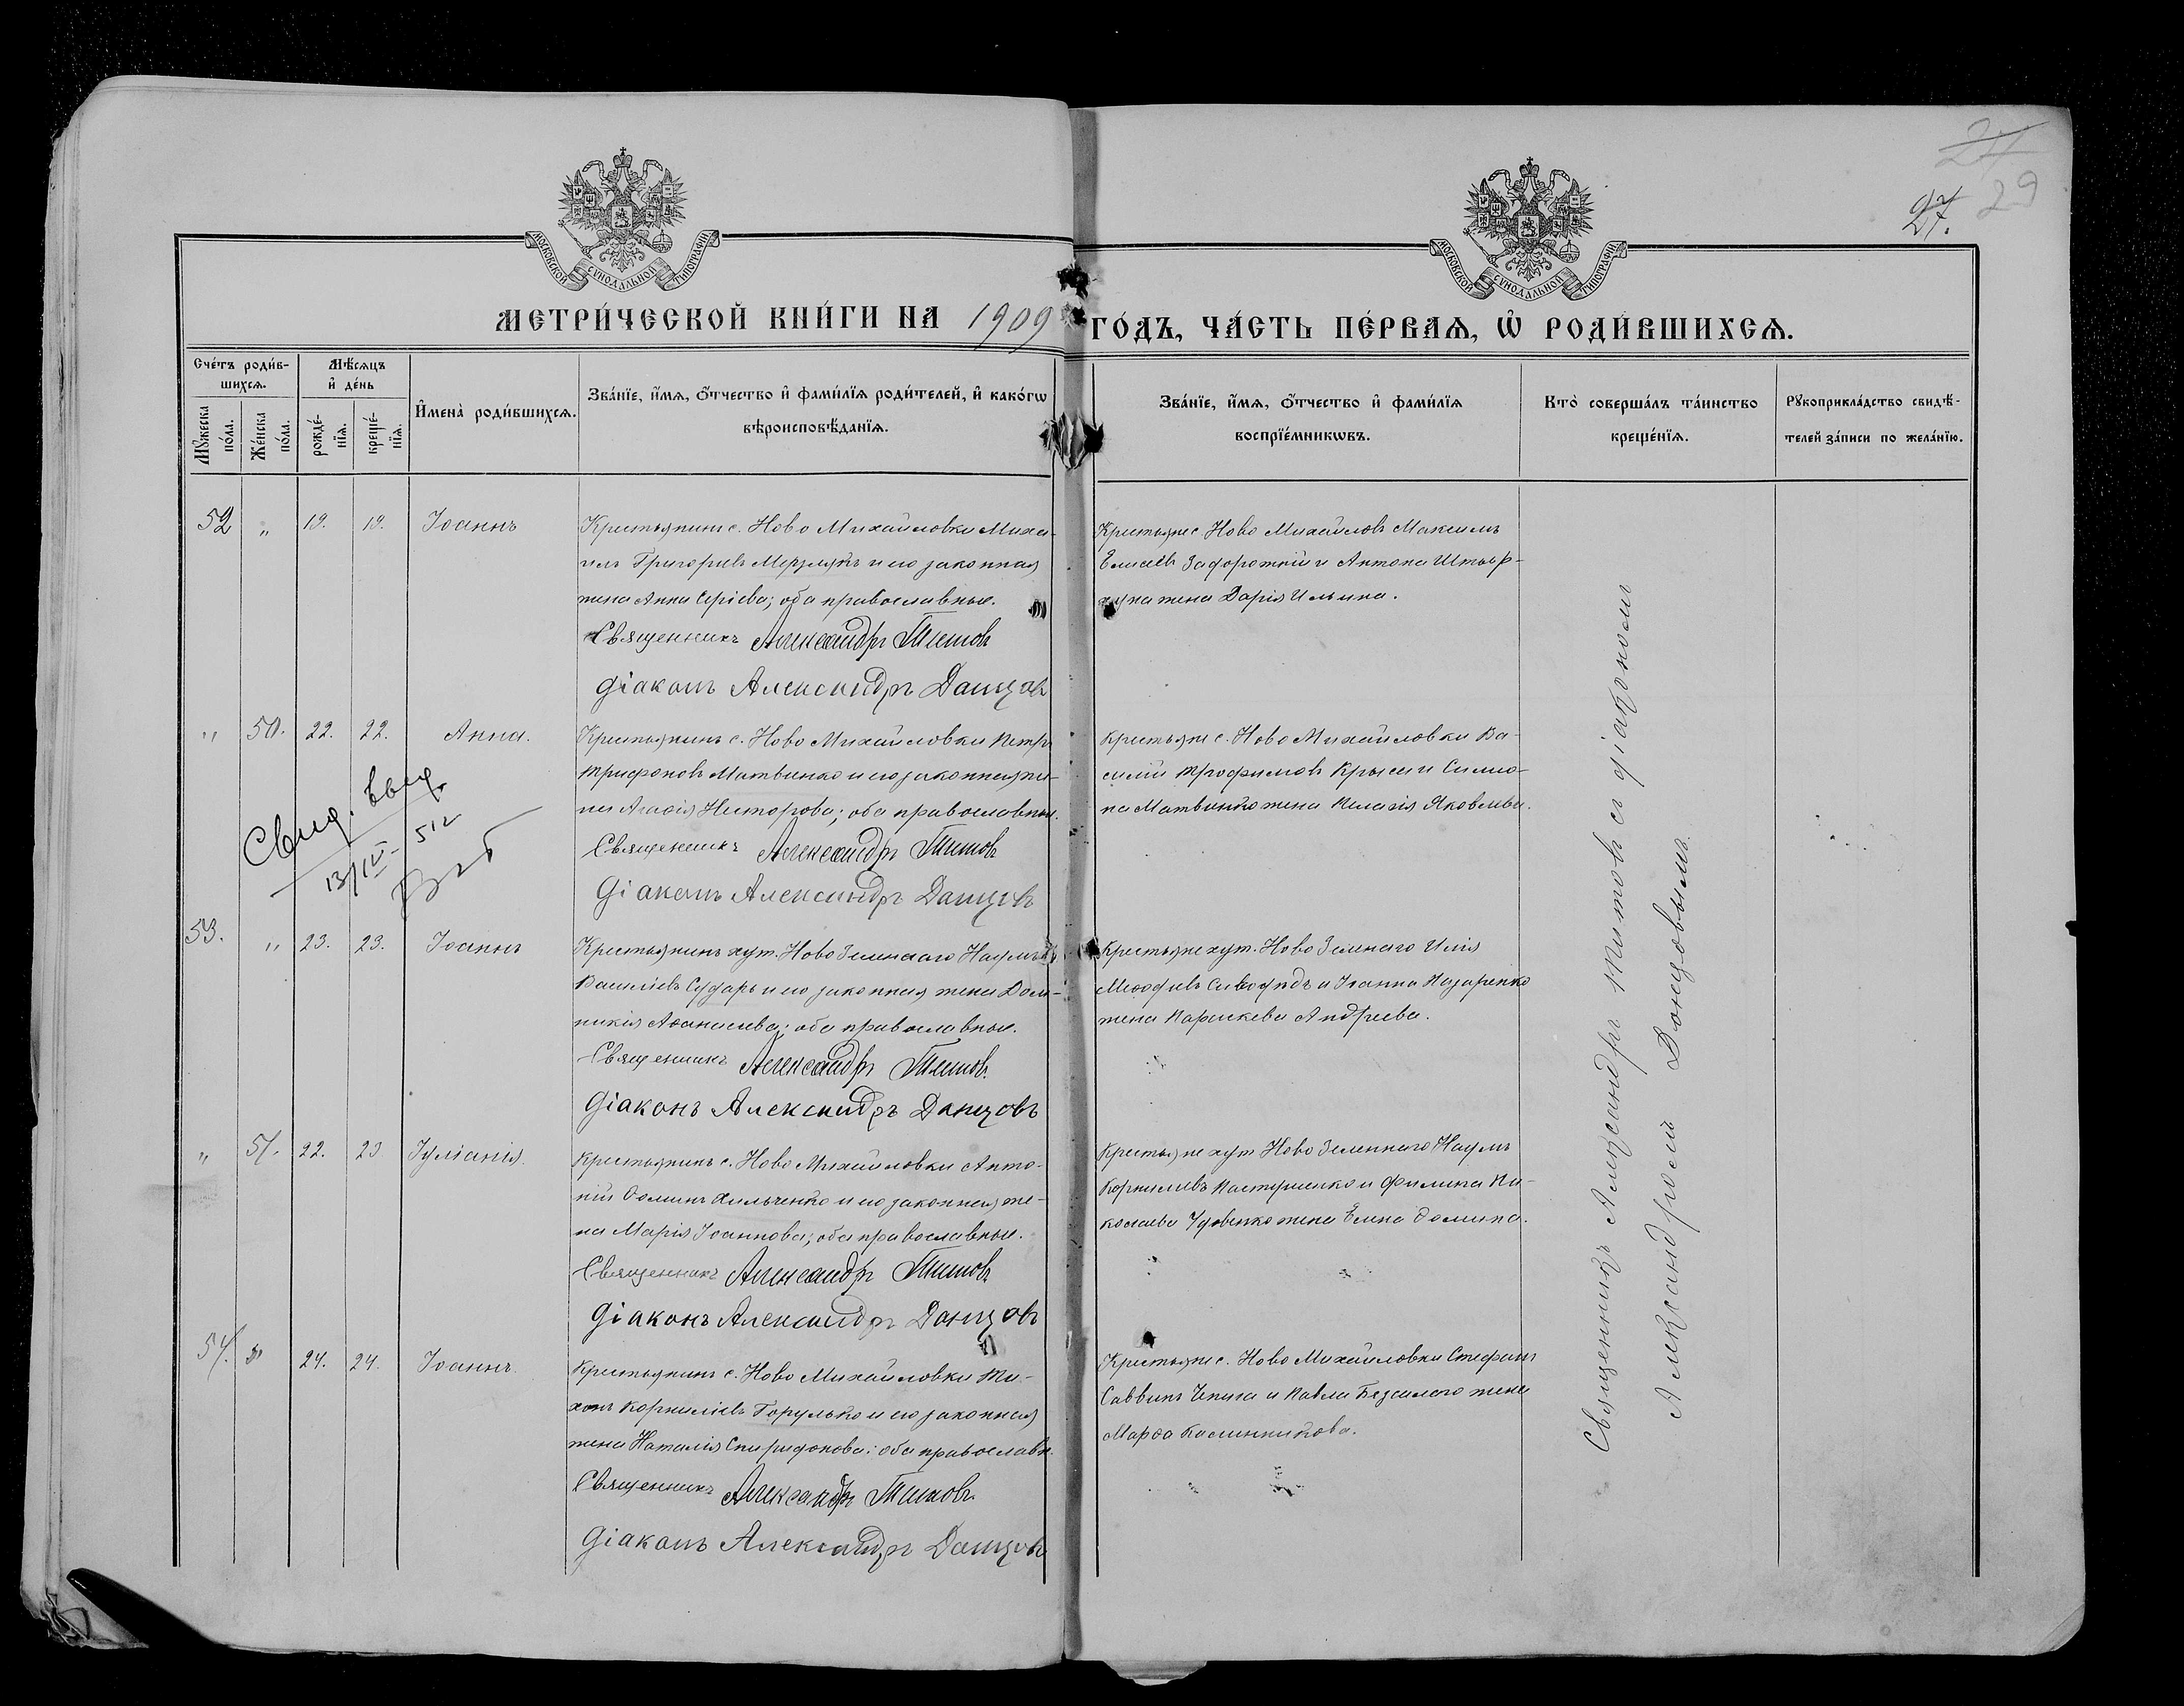 27
29
27.
МОСКОВСКОЙ СѴНОДАЛЬНОЙ ТИПОГРАФІИ
МОСКОВСКОЙ СѴНОДАЛЬНОЙ ТИПОГРАФІИ
МЕТРИ́ЧЕСКОЙ КНИ́ГИ НА 1909 ГО́ДЪ, ЧА́СТЬ ПЕ́РВАѦ, Ѡ РОДИ́ВШИХСѦ.
Сче́тъ роди́в-
шихсѧ.
Мꙋ́жеска по́ла.
Же́нска по́ла.
Мѣ́сѧцъ и҆ де́нь
рожде́-нїѧ.
креще́-нїѧ.
И҆мена̀ роди́вшихсѧ.
Зва́нїе, и҆́мѧ, ѻ҆́тчество и҆ фами́лїѧ роди́телей, и҆ како́гѡ
вѣроисповѣ́данїѧ.
Зва́нїе, и҆́мѧ, ѻ҆́тчество и҆ фами́лїѧ
воспрїе́мникѡвъ.
Кто̀ соверша́лъ та́инство
креще́нїѧ.
Рꙋкоприкла́дство свидѣ́-
телей за́писи по жела́нїю.
52 " 19. 19. Іоаннъ
Крестьянинъ с. Ново Михайловки Миха-
илъ Григорьевъ и его законная
жена Анна оба православные.
Священникъ Александръ Титовъ
Діаконъ Александръ Донцовъ
Крестьяне с. Ново Михайловк Максимъ
Елисеевъ Задорожній и Антона
жена Дарія Ильина.
" 50. 22. 22. Анна.
Крестьянинъ с. Ново Михайловки Петръ
Трифоновъ Матвиенко и его законная же-
на Агафія Несторова; оба православные.
Священникъ Александръ Титовъ
Діаконъ Александръ Донцовъ
Крестьяне с. Ново Михайловки Ва-
силій Трофимовъ Крыса и Симео-
на Матвиенко жена Пелагія Яковлева.
Свид. выд.
13/IV - 512
53. " 23. 23. Іоаннъ
Крестьянинъ хут. Ново Земнаго Наумъ
Василіевъ Сударь и его законная жена Дом-
никія Аѳанасиева; оба православные.
Священникъ Александръ Титовъ
Діаконъ Александръ Донцовъ
Крестьяне хут. Ново Земнаго Илія
Меѳодіевъ и Іоанна Назаренко
жена Параскева Андреева.
" 51. 22. 23 Іуліанія.
Крестьянинъ с. Ново Михайловки Анто-
ній Ѳоминъ Хильченко и его законная же-
на Марія Іоаннова; оба православные.
Священникъ Александръ Титовъ
Діаконъ Александръ Донцовъ
Крестьяне хут Ново Земнаго Наумъ
Корнилиевъ Пастушенко и Филипа Ни-
колаева Удовенко жена Елена Ѳомина.
54. " 24. 24. Іоаннъ.
Крестьянинъ с. Ново Михайловки Ти-
хонъ Корниліевъ Горулько и его законная
жена Наталія Спиридонова; оба православн.
Священникъ Александръ Титовъ
Діаконъ Александръ Донцовъ
Крестьяне с. Ново Михайловки Стефанъ
Саввинъ Чепига и Павла жена
Марѳа Калинникова.
Священникъ Александръ Титовъ съ діакономъ
Александромъ Донцовымъ.